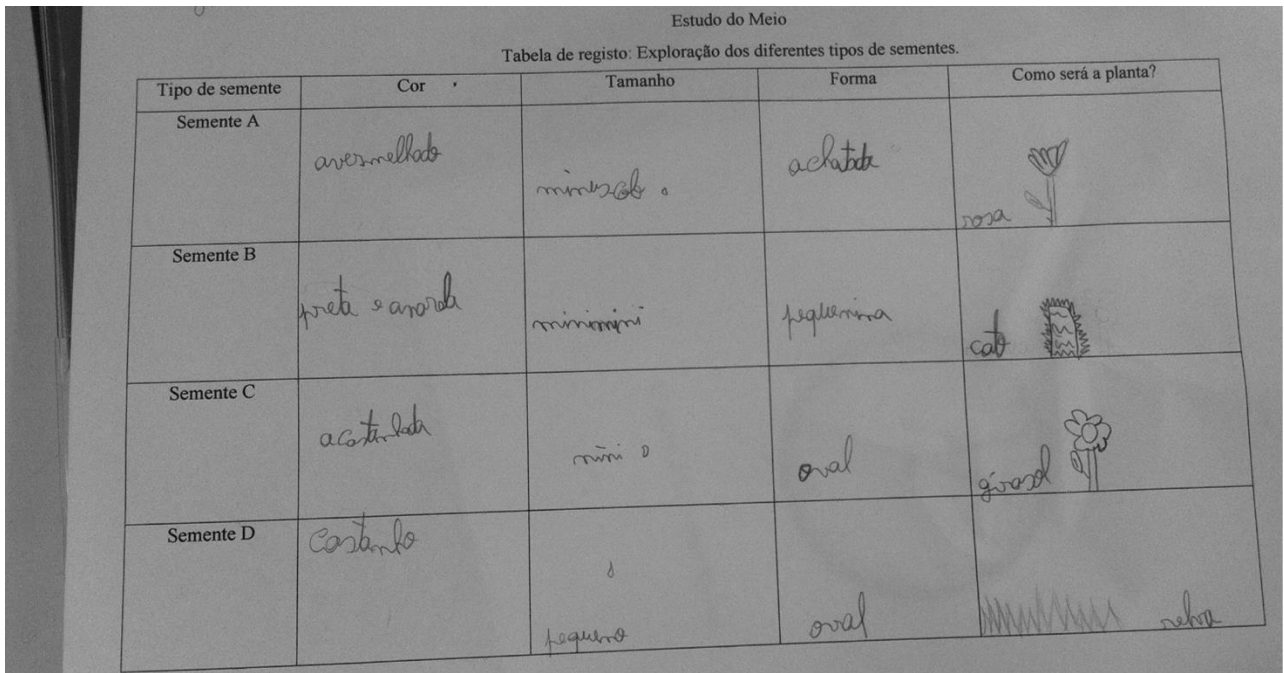 Estudo do Meio
Tabela de registo: Exploração dos diferentes tipos de sementes.
Tipo de semente Cor Tamanho Forma Como será a planta?
Semente A
avermelhado
achatada
rosa
Semente B
preta e
minimini
pequenina
cato
Semente C
acastanhada
mini
oval
girasol
Semente D
Castanho
pequeno
oval
relva